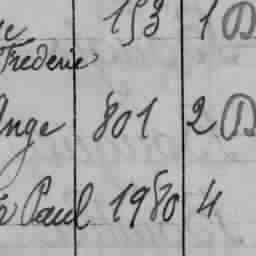 153 1
Frederic
Ange 801 2
Paul 1980 4